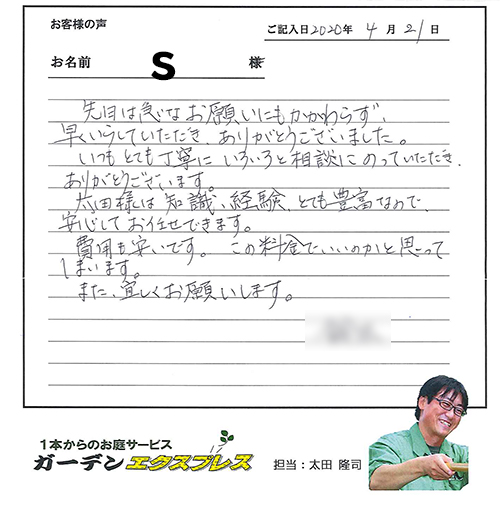 お客様の声
ご記入日2020年 4月21日
お名前 S 様
先日は急なお願いにもかかわらず、
早くいらしていただき、ありがとうございました。
いつもとても丁寧にいろいろと相談にのっていただき、
ありがとうございます。
太田様は知識、経験、とても豊富なので、
安心してお任せできます。
費用も安いです。この料金でいいのかと思って
しまいます。
また、宜しくお願いします。
1本からのお庭サービス
ガーデンエクスプレス
担当：太田 隆司